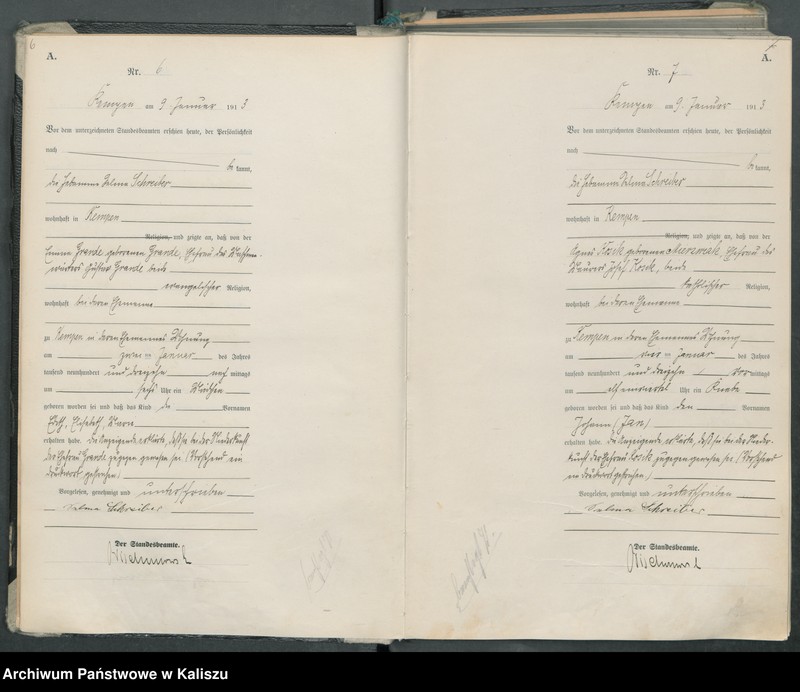 6
A.
Nr. 6
Kempen am 9 Januar 1913
Vor dem unterzeichneten Standesbeamten erschien heute, der Persönlichkeit
nach
be kannt,
die Hebamme Selma Schreiber
wohnhaft in Kempen
Religion, und zeigte an, daß von der
Grande geborenen Grande, Ehefrau des
Gustav Grande beide
evangelischer Religion,
wohnhaft bei deren Ehemanne
zu Kempen in deren Ehemannes Wohnung
am zwei ten Januar des Jahres
tausend neunhundert und dreizehn nach mittags
um sechs Uhr ein Mädchen
geboren worden sei und daß das Kind die Vornamen
Elisabeth, Maria
erhalten habe. Die Anzeigende erklärte, daß sie bei der Niederkunft
der Ehefrau Grande zugegen gewesen sei. (Vorstehend ein
Druckwort gestrichen)
Vorgelesen, genehmigt und unterschrieben
Selma Schreiber
Der Standesbeamte.
7
A.
Nr. 7
Kempen am 9 Januar 1913
Vor dem unterzeichneten Standesbeamten erschien heute, der Persönlichkeit
nach
be kannt,
die Hebamme Selma Schreiber
wohnhaft in Kempen
Religion, und zeigte an, daß von der
Agnes Kosik geborenen Ehefrau des
Maurers Josef Kosik, beide
katholischer Religion,
wohnhaft bei deren Ehemanne
zu Kempen in deren Ehemannes Wohnung
am vier ten Januar des Jahres
tausend neunhundert und dreizehn vor mittags
um Uhr ein Knabe
geboren worden sei und daß das Kind den Vornamen
Johann (Jan)
erhalten habe. Die Anzeigende erklärte, daß sie bei der Nieder-
kunft der Ehefrau Kosik zugegen gewesen sei. (Vorstehend
ein Druckwort gestrichen)
Vorgelesen, genehmigt und unterschrieben
Selma Schreiber
Der Standesbeamte.
Archiwum Państwowe w Kaliszu